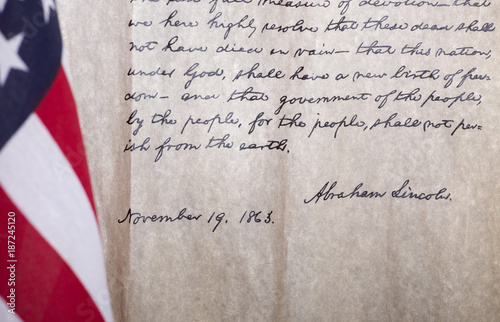 the last full measure of devotion—that
we here highly resolve that these dead shall
not have died in vain—that this nation,
under God, shall have a new birth of free-
dom—and that government of the people,
by the people, for the people, shall not per-
ish from the earth.
Abraham Lincoln.
November 19, 1863.
Adobe Stock | #187245120